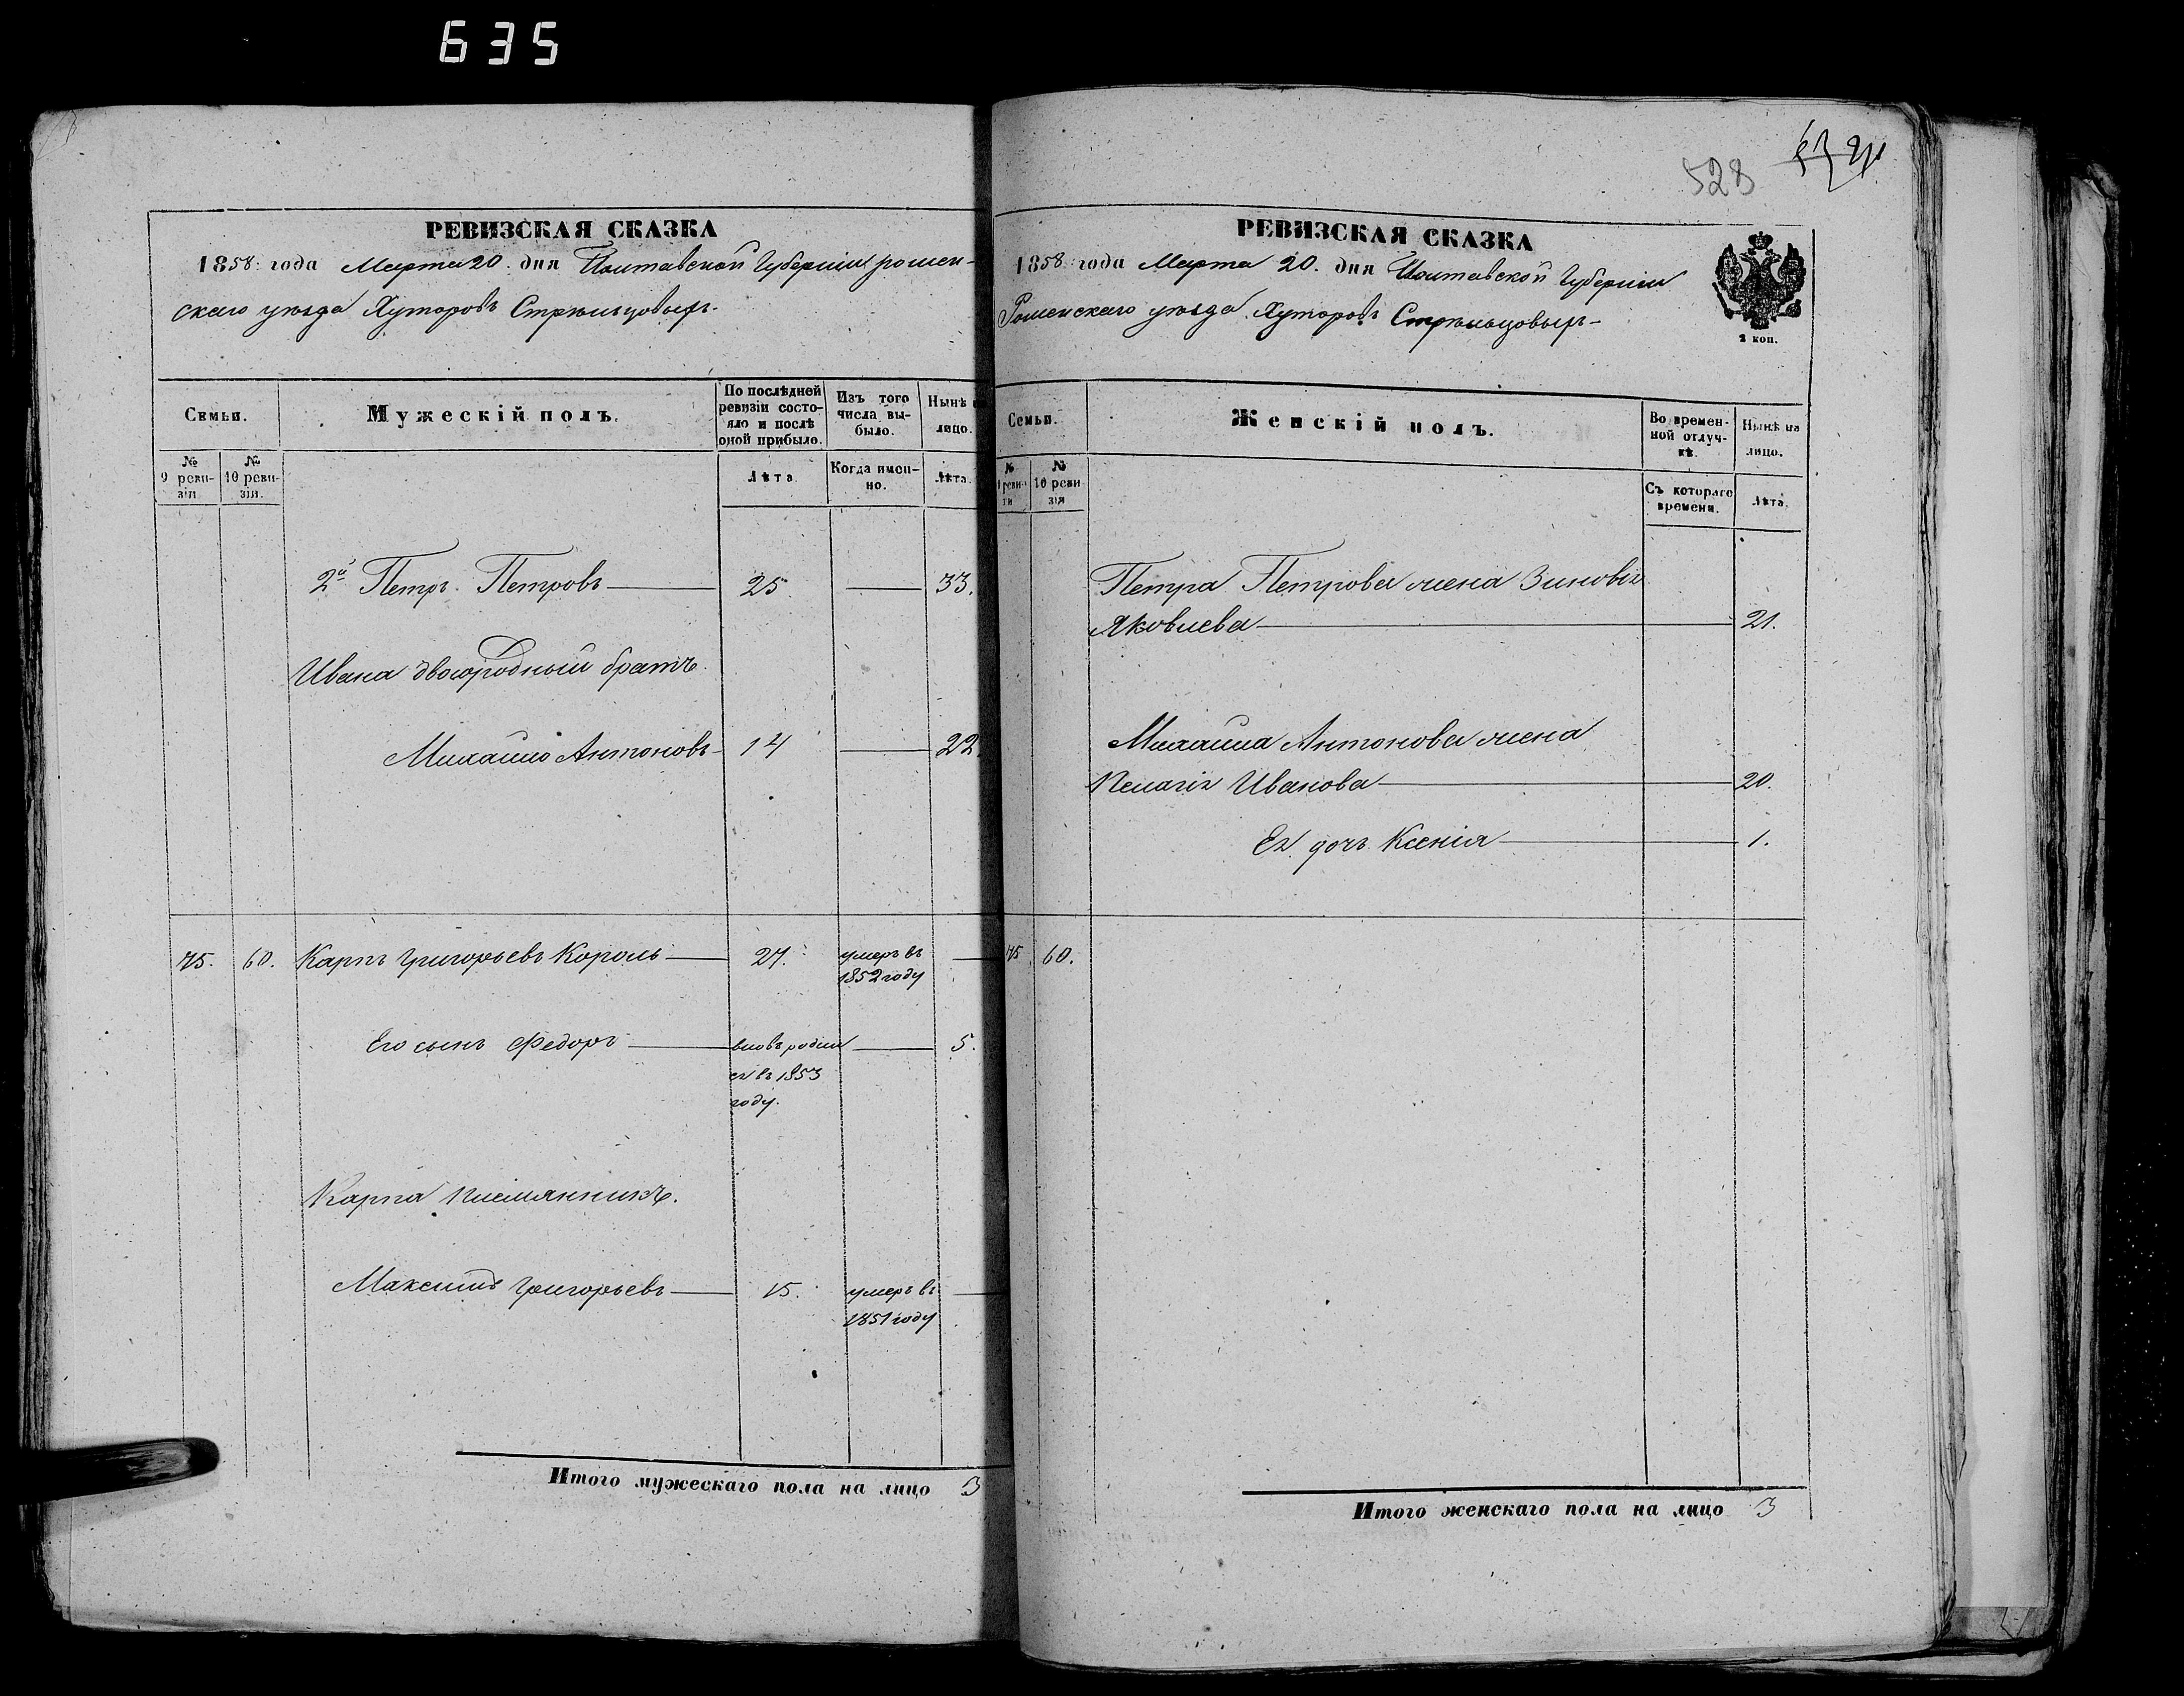 635
РЕВИЗСКАЯ СКАЗКА
1858 года Марта 20. дня Полтавской Губерніи ромен-
скаго уѣзда Хуторовъ Стрѣльцовыхъ.
Семьи.
Мужескій полъ.
По послѣдней ревизіи состояло и послѣ оной прибыло.
Изъ того числа выбыло.
Нынѣ
лицо.
№ 9 ревизіи
№ 10 ревизіи.
Лѣта
Когда именно.
Лѣта.
2й Петръ Петровъ 25 33.
Ивана двоюродный братъ.
Михайло Антоновъ 14 22
75. 60. Карпъ Григорьевъ Король 27. умеръ въ
1852 году
Его сынъ Федоръ вновь родил 5.
ся въ 1853
году.
Карпа племянникъ.
Максимъ Григорьевъ 15. умеръ въ
1851 году
Итого мужескаго пола на лицо 3
528
РЕВИЗСКАЯ СКАЗКА
1858 года Марта 20. дня Полтавской Губерніи
Роменскаго уѣзда Хуторовъ Стрѣльцовыхъ
2 коп.
Семьи.
Женскій полъ.
Во временной отлучкѣ.
Нынѣ на лицо.
№ 10 ревизія
Съ котораго времени.
Лѣта.
Петра Петрова жена Зиновія
Яковлева 21.
Михайла Антонова жена
Пелагія Иванова 20.
Ея дочь Ксенія 1.
75 60.
Итого женскаго пола на лицо 3